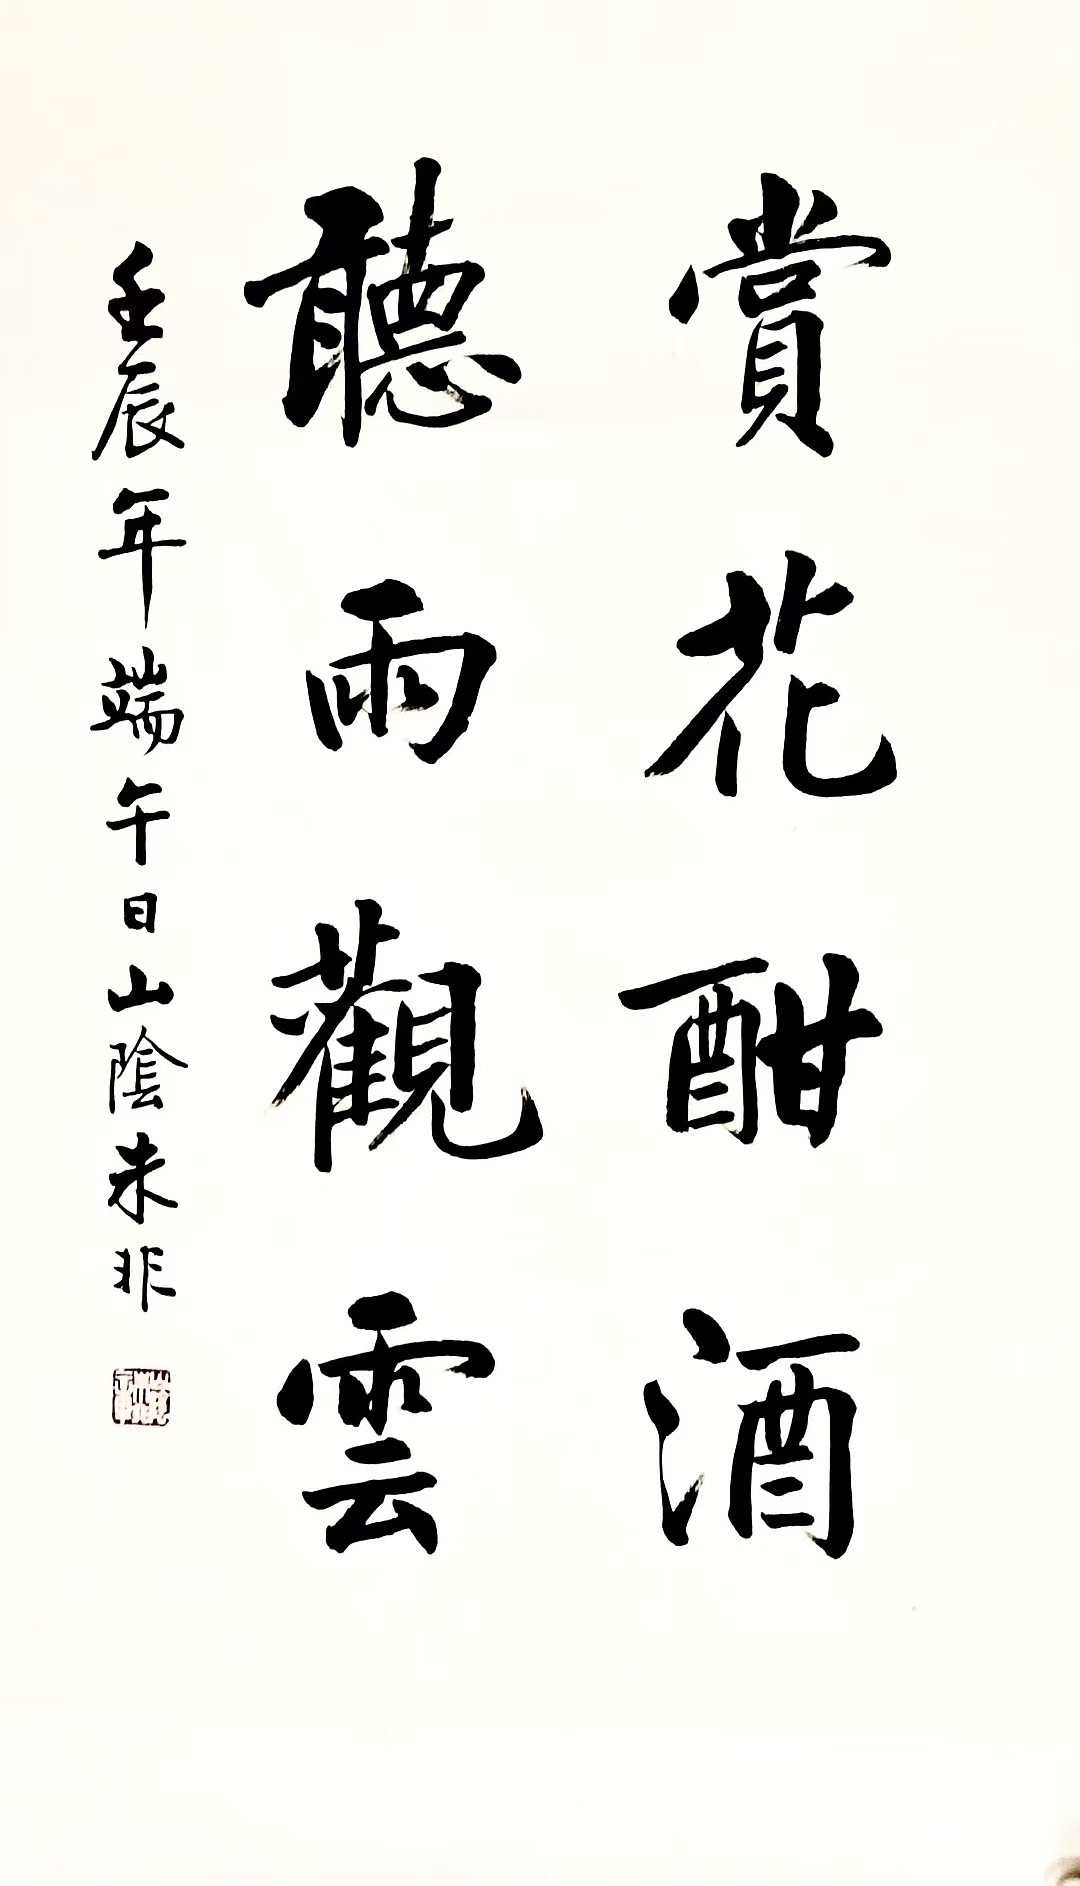 賞花酣酒
聽雨觀雲
壬辰年端午日山陰朱非